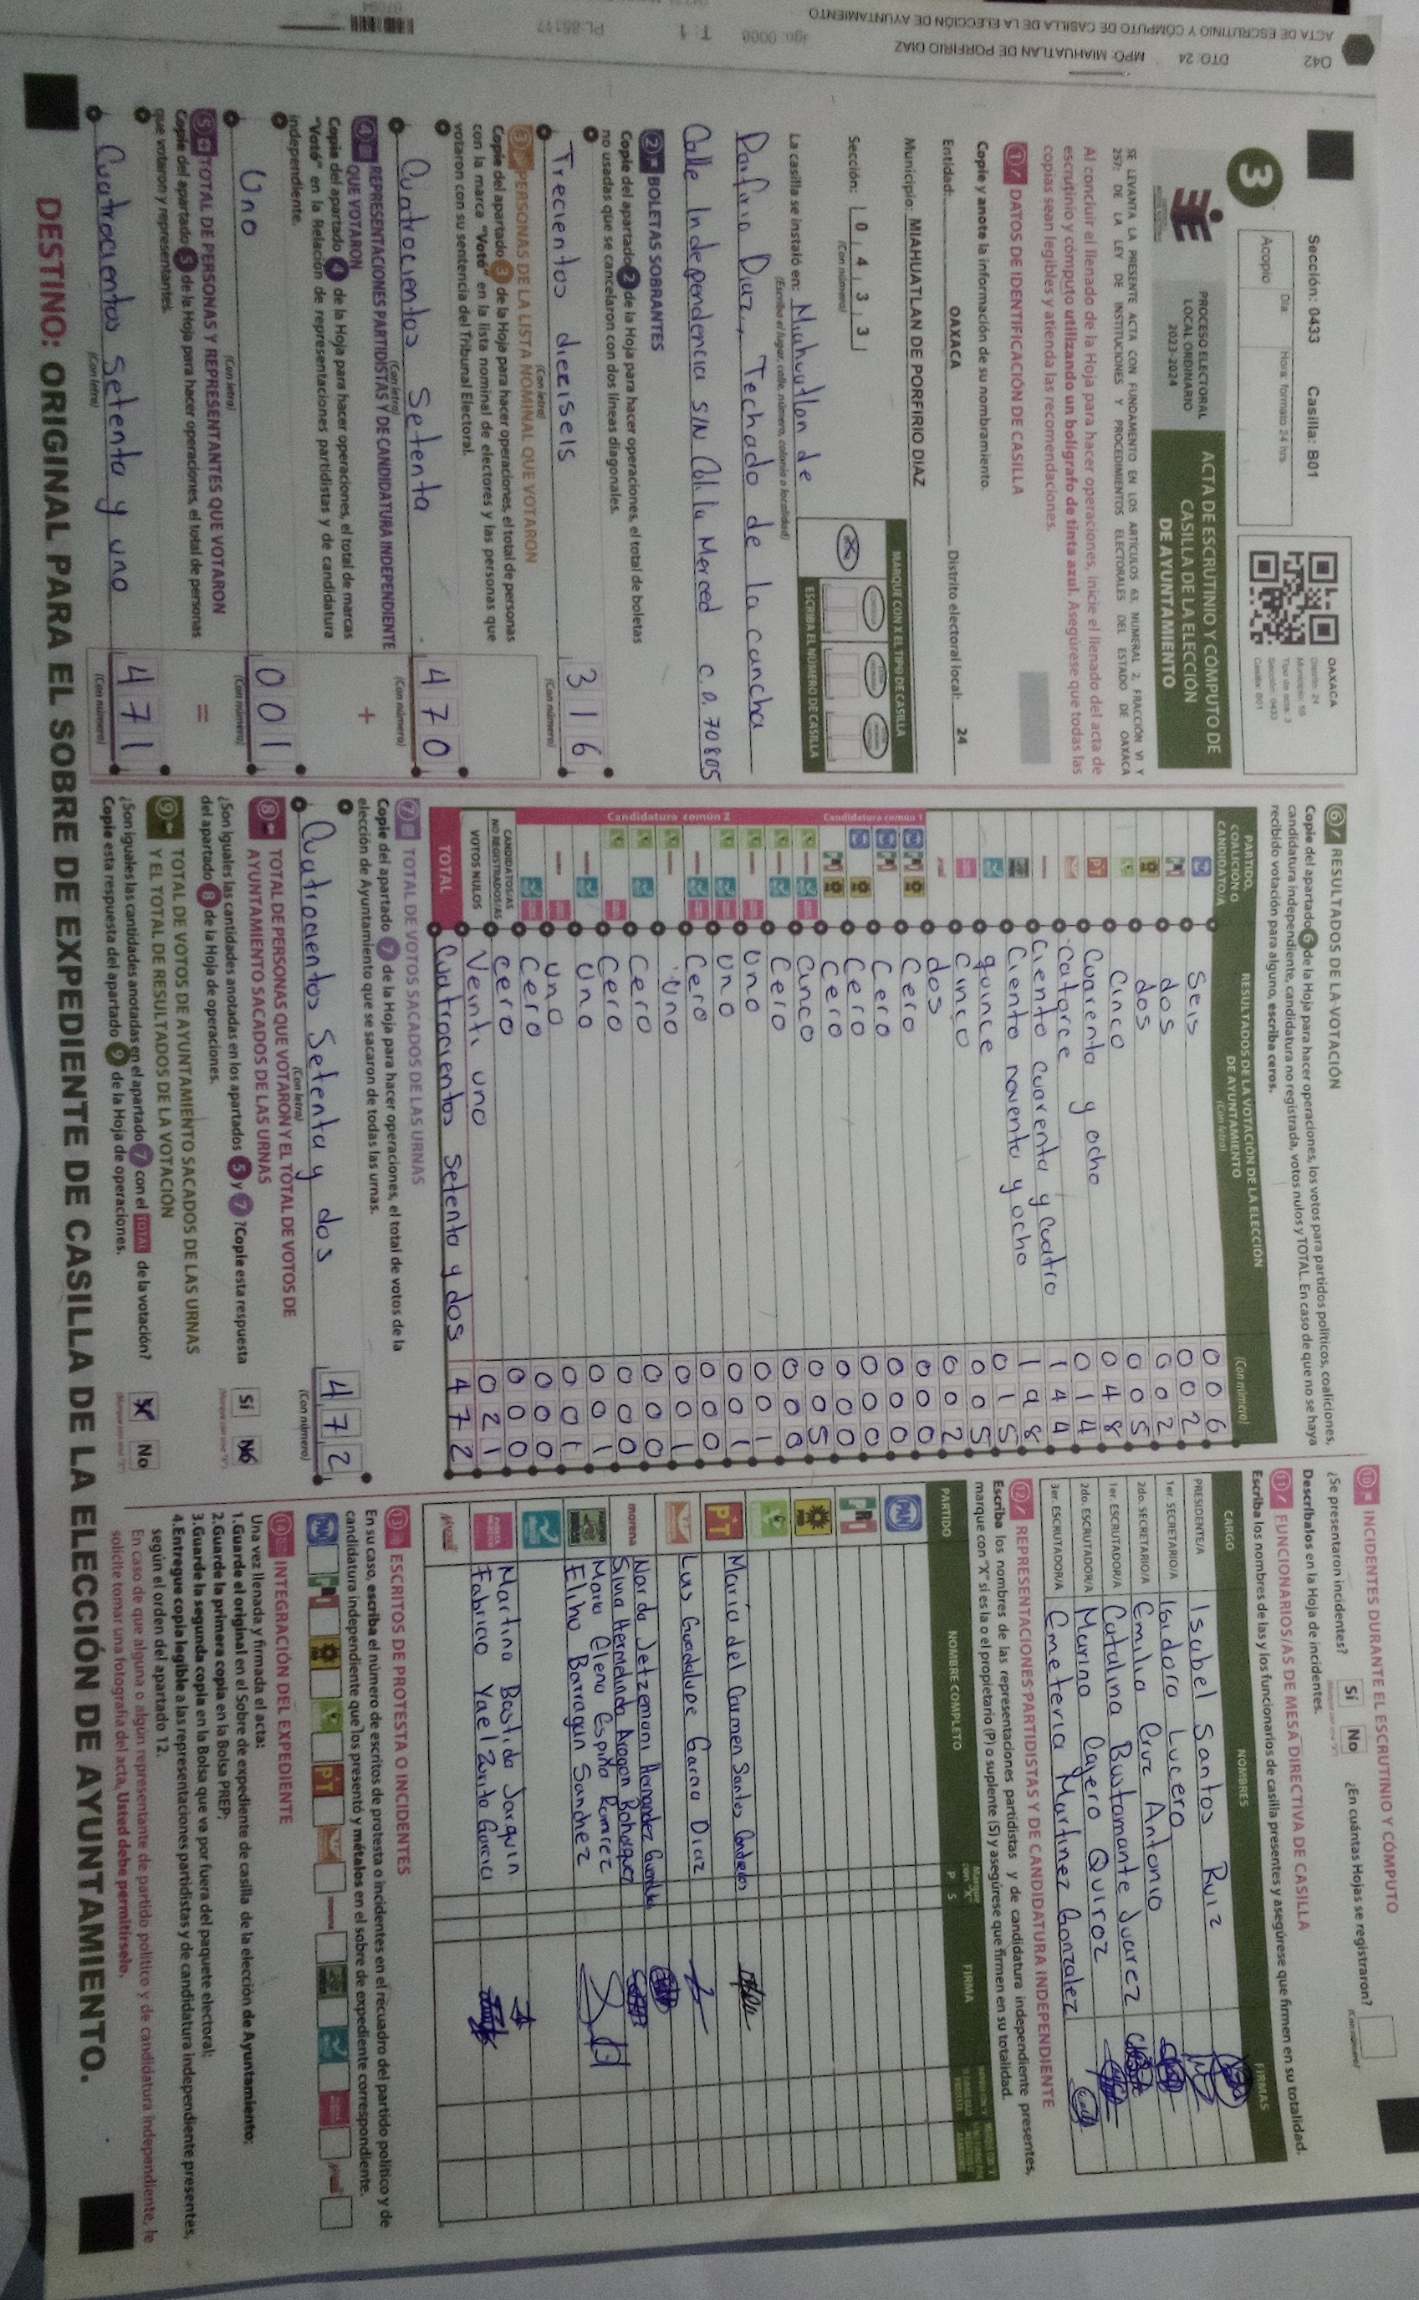 042 DTO: 24 MPO: MIAHUATLAN DE PORFIRIO DIAZ
ACTA DE ESCRUTINIO Y CÓMPUTO DE CASILLA DE LA ELECCIÓN DE AYUNTAMIENTO
T: 1
Sección: 0433 Casilla: B01
3
Día:
Hora: formato 24 hrs
Acopio
OAXACA
PROCESO ELECTORAL
LOCAL ORDINARIO
2023-2024
ACTA DE ESCRUTINIO Y CÓMPUTO DE
CASILLA DE LA ELECCIÓN
DE AYUNTAMIENTO
SE LEVANTA LA PRESENTE ACTA CON FUNDAMENTO EN LOS ARTICULOS 63, NUMERAL 2, FRACCIÓN VI Y
257; DE LA LEY DE INSTITUCIONES Y PROCEDIMIENTOS ELECTORALES DEL ESTADO DE OAXACA
Al concluir el llenado de la Hoja para hacer operaciones, inicie el llenado del acta de
escrutinio y cómputo utilizando un bolígrafo de tinta azul. Asegúrese que todas las
copias sean legibles y atienda las recomendaciones.
1 DATOS DE IDENTIFICACIÓN DE CASILLA
Copie y anote la información de su nombramiento.
Entidad: OAXACA Distrito electoral local: 24
Municipio: MIAHUATLAN DE PORFIRIO DIAZ
MARQUE CON X EL TIPO DE CASILLA
Sección: 0 4 3 3
(Con número)
X
ESCRIBA EL NÚMERO DE CASILLA
La casilla se instaló en: Miahuatlan de
(Escriba el lugar, calle, número, colonia o localidad)
Porfirio Diaz, Techado de la cancha
Calle Independencia S/N Col. la Merced c.p. 70805
2 BOLETAS SOBRANTES
Copie del apartado 2 de la Hoja para hacer operaciones, el total de boletas
no usadas que se cancelaron con dos líneas diagonales.
Trecientos dieciseis 316
(Con letra) (Con número)
3 PERSONAS DE LA LISTA NOMINAL QUE VOTARON
Copie del apartado 3 de la Hoja para hacer operaciones, el total de personas
con la marca "Votó" en la lista nominal de electores y las personas que
votaron con su sentencia del Tribunal Electoral.
Cuatrocientos setenta 470
(Con letra) (Con número)
4 REPRESENTACIONES PARTIDISTAS Y DE CANDIDATURA INDEPENDIENTE
QUE VOTARON
+
Copie del apartado 4 de la Hoja para hacer operaciones, el total de marcas
"Votó" en la Relación de representaciones partidistas y de candidatura
independiente.
Uno 001
(Con letra) (Con número)
5 TOTAL DE PERSONAS Y REPRESENTANTES QUE VOTARON
=
Copie del apartado 5 de la Hoja para hacer operaciones, el total de personas
que votaron y representantes.
Cuatrocientos setenta y uno 471
(Con letra) (Con número)
6 RESULTADOS DE LA VOTACIÓN
Copie del apartado 6 de la Hoja para hacer operaciones, los votos para partidos políticos, coaliciones,
candidatura independiente, candidatura no registrada, votos nulos y TOTAL. En caso de que no se haya
recibido votación para alguno, escriba ceros.
PARTIDO, COALICIÓN O CANDIDATO/A
RESULTADOS DE LA VOTACIÓN DE LA ELECCIÓN
DE AYUNTAMIENTO
(Con letra) (Con número)
Seis 006
dos 002
dos 002
Cinco 005
Cuarenta y ocho 048
catorce 014
Ciento cuarenta y cuatro 144
Ciento noventa y ocho 198
quince 015
cinco 005
dos 002
Candidatura común 1
Cero 000
Cero 000
Cero 000
Cero 000
Candidatura común 2
Cinco 005
Cero 000
Uno 001
Uno 001
Cero 000
Uno 001
Cero 000
Cero 000
Uno 001
Uno 001
Cero 000
CANDIDATOS/AS NO REGISTRADOS/AS cero 000
VOTOS NULOS Veinti uno 021
TOTAL Cuatrocientos setenta y dos 472
7 TOTAL DE VOTOS SACADOS DE LAS URNAS
Copie del apartado 7 de la Hoja para hacer operaciones, el total de votos de la
elección de Ayuntamiento que se sacaron de todas las urnas.
Cuatrocientos Setenta y dos 472
(Con letra) (Con número)
8 TOTAL DE PERSONAS QUE VOTARON Y EL TOTAL DE VOTOS DE
AYUNTAMIENTO SACADOS DE LAS URNAS
¿Son iguales las cantidades anotadas en los apartados 5 y 7 ? Copie esta respuesta
del apartado 8 de la Hoja de operaciones.
Sí No
9 TOTAL DE VOTOS DE AYUNTAMIENTO SACADOS DE LAS URNAS
Y EL TOTAL DE RESULTADOS DE LA VOTACIÓN
¿Son iguales las cantidades anotadas en el apartado 7 con el TOTAL de la votación?
Copie esta respuesta del apartado 9 de la Hoja de operaciones.
X No
10 INCIDENTES DURANTE EL ESCRUTINIO Y CÓMPUTO
¿Se presentaron incidentes? Sí No ¿En cuántas Hojas se registraron?
(Con número)
Descríbalos en la Hoja de incidentes.
11 FUNCIONARIOS/AS DE MESA DIRECTIVA DE CASILLA
Escriba los nombres de las y los funcionarios de casilla presentes y asegúrese que firmen en su totalidad.
CARGO NOMBRES FIRMAS
PRESIDENTE/A Isabel Santos Ruiz
1er. SECRETARIO/A Isidora Lucero
2do. SECRETARIO/A Emilia Cruz Antonio
1er. ESCRUTADOR/A Catalina Bustamante Juarez
2do. ESCRUTADOR/A Marino Cajero Quiroz
3er. ESCRUTADOR/A Emeteria Martinez Gonzalez
12 REPRESENTACIONES PARTIDISTAS Y DE CANDIDATURA INDEPENDIENTE
Escriba los nombres de las representaciones partidistas y de candidatura independiente presentes,
marque con "X" si es la o el propietario (P) o suplente (S) y asegúrese que firmen en su totalidad.
PARTIDO NOMBRE COMPLETO Marque con "X" P S FIRMA
PAN
PRI
PRD
PT Maria del Carmen Santos
Luis Guadalupe Garcia Diaz
morena Norda Jetzemani Hernandez
Silvia Hermelinda Aragon Bohorquez
Maria Elena Espina Ramirez
Elihu Barragan Sanchez
Martina Bastida Joaquin
Fabricio Yael Zurita Garcia
13 ESCRITOS DE PROTESTA O INCIDENTES
En su caso, escriba el número de escritos de protesta o incidentes en el recuadro del partido político y de
candidatura independiente que los presentó y métalos en el sobre de expediente correspondiente.
PAN PRI PRD PT morena
14 INTEGRACIÓN DEL EXPEDIENTE
Una vez llenada y firmada el acta:
1.Guarde el original en el Sobre de expediente de casilla de la elección de Ayuntamiento;
2.Guarde la primera copia en la Bolsa PREP;
3.Guarde la segunda copia en la Bolsa que va por fuera del paquete electoral;
4.Entregue copia legible a las representaciones partidistas y de candidatura independiente presentes,
según el orden del apartado 12.
En caso de que alguna o algún representante de partido político y de candidatura independiente, le
solicite tomar una fotografía del acta, Usted debe permitírselo.
DESTINO: ORIGINAL PARA EL SOBRE DE EXPEDIENTE DE CASILLA DE LA ELECCIÓN DE AYUNTAMIENTO.